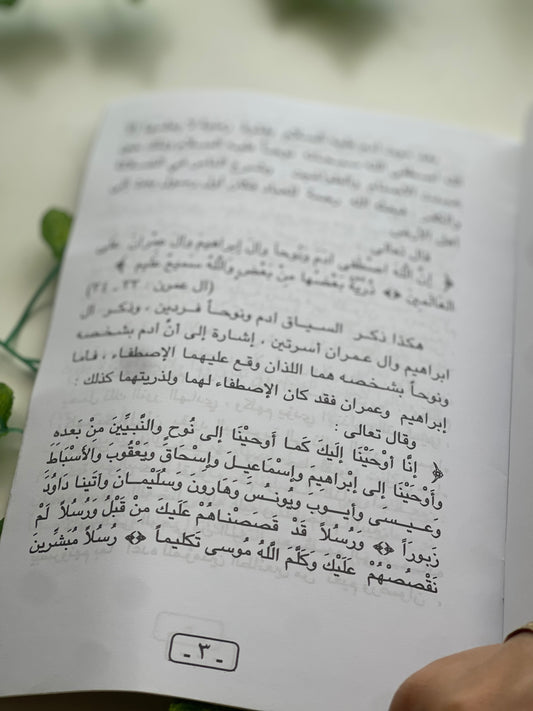 قال تعالى
﴿ إِنَّ اللَّهَ اصْطَفَى آدَمَ وَنُوحاً وَآلَ إِبْرَاهِيمَ وَآلَ عِمْرَانَ عَلَى
الْعَالَمِينَ ﴿﴾ ذُرِّيَّةً بَعْضُهَا مِنْ بَعْضٍ وَاللَّهُ سَمِيعٌ عَلِيمٌ ﴾
(آل عمرن : ٣٣ ـ ٣٤)
هكذا ذكر السياق آدم ونوحاً فردين ، وذكر آل
ابراهيم وآل عمران أسرتين ، إشارة إلى أنَّ آدم بشخصه
ونوحاً بشخصه هما اللذان وقع عليهما الإصطفاء ، فاما
إبراهيم وعمران فقد كان الإصطفاء لهما ولذريتهما كذلك :
وقال تعالى :
﴿ إِنَّا أَوْحَيْنَا إِلَيْكَ كَمَا أَوحَيْنَا إلى نُوحٍ والنَّبِيِّينَ مِنْ بَعده
وأَوْحَيْنَا إلى إبْراهِيمَ وإسْمَاعِيلَ وإسْحَاقَ ويَعْقُوبَ والأَسْبَاطَ
وَعيسَى وأيوبَ ويُونُسَ وَهَارونَ وَسُلَيْمانَ وآتَينا دَاوُدَ
زَبوراً ﴿﴾ ورُسُلاً قَدْ قَصَصْنَاهُمْ عَلَيكَ مِنْ قَبْلُ وَرُسُلاً لَمْ
نَقْصُصْهُمْ عَلَيْكَ وَكَلَّمَ اللَّهُ مُوسى تَكليماً ﴿﴾ رُسُلاً مُبَشِّرينَ
ـ ٣ ـ